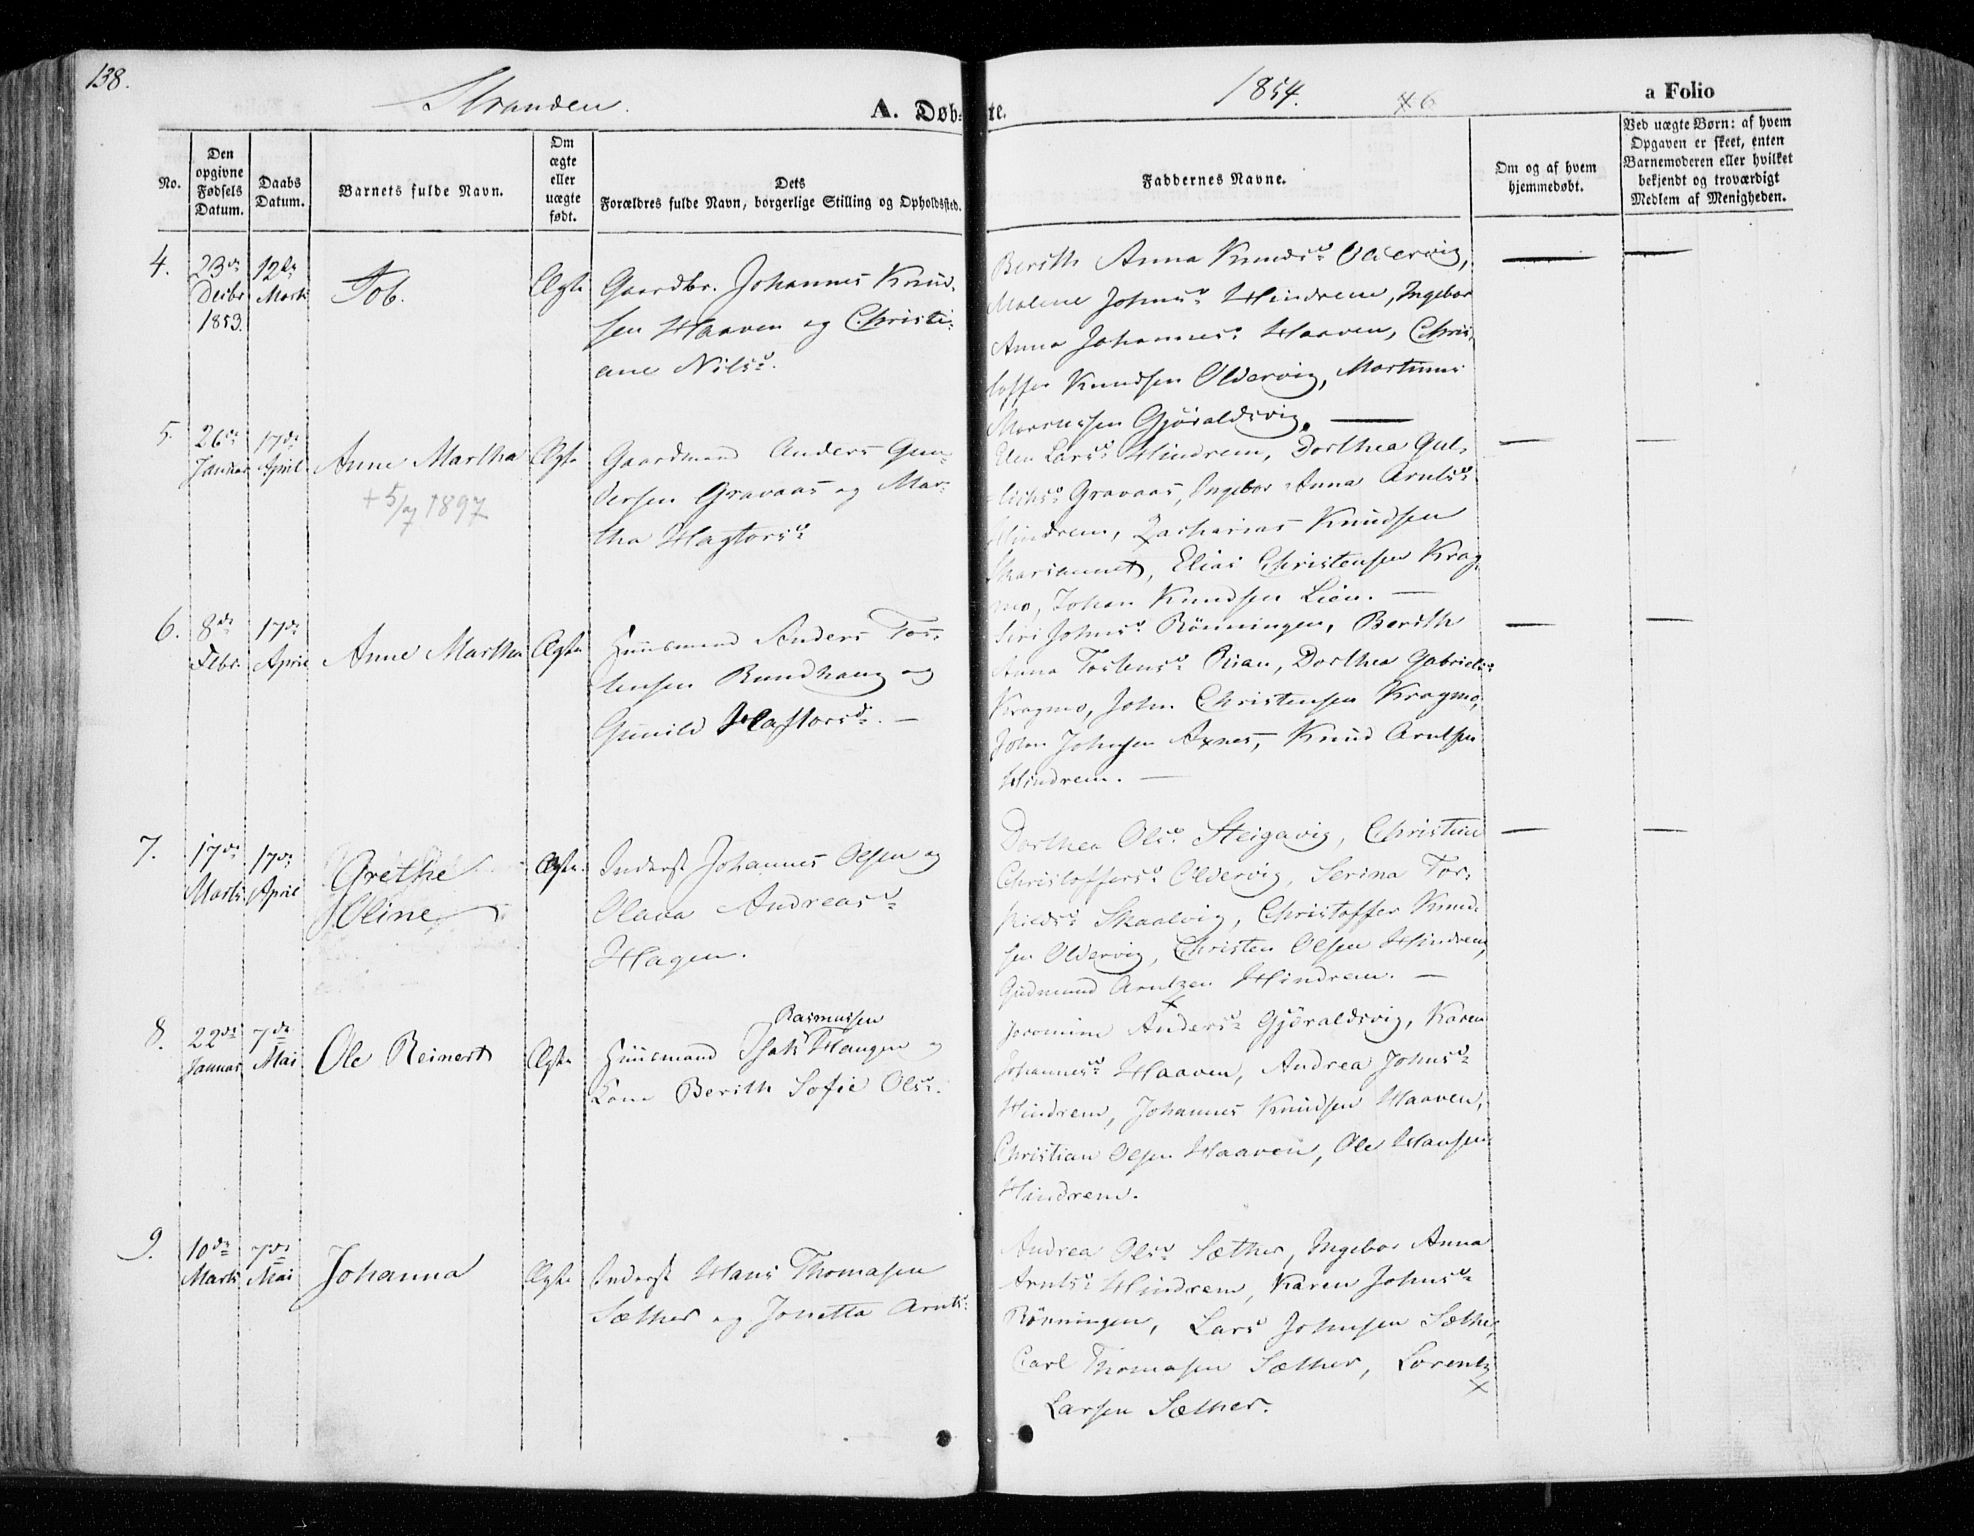 138.
Stranden.
A. Døbte.
1854.
6
a Folio
No.
Den opgivne Fødsels Datum.
Daabs Datum.
Barnets fulde Navn.
Om ægte eller uægte født.
Dets Forældres fulde Navn, borgerlige Stilling og Opholdssted.
Faddernes Navne.
Om og af hvem hjemmedøbt.
Ved uægte Børn: af hvem Opgaven er skeet, enten Barnemoderen eller hvilket bekjendt og troværdigt Medlem af Menigheden.
4.
23de Decbr 1853.
12te Marts
Job.
Ægte
Gaardbr. Johannes Knud-
sen Haaven og Christi-
ane Nilsd.
Berith Anna Knudsd. Oldervig,
Malene Johnsd. Hindrem, Ingebor
Anna Johannesd. Haaven, Chris-
toffer Knudsen Oldervig, Martinus
Gjøraldsvig. —
5.
26de Januar
17de April
Anne Martha
+ 5/7 1897
Ægte
Gaardmand Anders Gun-
dersen Gravaas og Mar-
tha Hagtorsd.
Elen Larsd. Hindrem, Dorthea Gul-
Gravaas, Ingebor Anna Arntsd.
Hindrem, Zacharias Knudsen
Elias Christensen Krag-
mo, Johan Knudsen Lien. —
6.
8de Febr.
17de April
Anne Martha
Ægte
Huusmand Anders Tos-
tensen Rundhaug og
Gunild Haftorsd. —
Siri Johnsd. Rönningen, Berith
Anna Tostensd. Rian, Dorthea Gabrielsd.
Kragmo, John Christensen Kragmo,
John Johnsen Axnes, Knud Arntsen
Hindrem. —
7.
17de Marts
17de April
Grethe
Oline
Ægte
Inderst Johannes Olsen og
Olava Andreasd.
Hagen.
Dorthea Olsd. Steigavig, Christine
Christoffersd. Oldervig, Serina Tor-
kildsd. Skaalvig, Christoffer Knud-
sen Oldervig, Christen Olsen Hindrem,
Gudmund Arntzen Hindrem. —
8.
22de Januar
7de Mai
Ole Reinert
Ægte
Rasmussen
Huusmand Isak Haugen og
Kone Berith Sofie Olsd.
Jeromine Andersd. Gjøraldsvig, Karen
Johannesd. Haaven, Andrea Johnsd.
Hindrem, Johannes Knudsen Haaven,
Christian Olsen Haaven, Ole Hansen
Hindrem.
9.
10de Marts
7de Mai
Johanna
Ægte
Inderst Hans Thomasen
Sæther og Jonetta Arntsd.
Andrea Olsd. Sæther, Ingebor Anna
Arntsd. Hindrem, Karen Johnsd.
Rönningen, Lars Johnsen Sæther,
Carl Thomasen Sæther, Lorentz
Larsen Sæther.